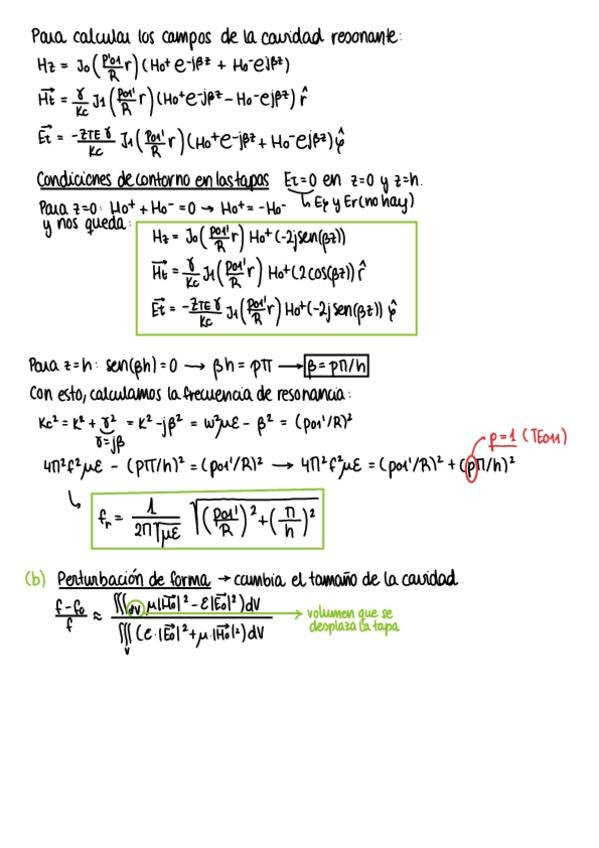 Para calcular los campos de la cavidad resonante:
Hz = J₀(p'₀₁/R r)(H₀⁺e^-jβz + H₀⁻e^jβz)
H⃗t = γ/Kc J₁(p₀₁'/R r)(H₀⁺e^-jβz − H₀⁻e^jβz) r̂
E⃗t = −ZTE γ/Kc J₁(p₀₁'/R r)(H₀⁺e^-jβz + H₀⁻e^jβz) φ̂
Condiciones de contorno en las tapas Et=0 en z=0 y z=h.
Para z=0: H₀⁺ + H₀⁻ = 0 → H₀⁺ = −H₀⁻ ↳ Eφ y Er (no hay)
y nos queda:
Hz = J₀(p₀₁'/R r) H₀⁺(−2jsen(βz))
H⃗t = γ/Kc J₁(p₀₁'/R r) H₀⁺(2cos(βz)) r̂
E⃗t = −ZTE γ/Kc J₁(p₀₁'/R r) H₀⁺(−2jsen(βz)) φ̂
Para z=h: sen(βh) = 0 → βh = pπ → β = pπ/h
Con esto, calculamos la frecuencia de resonancia:
Kc² = K² + γ² = K² − jβ² = ω²με − β² = (p₀₁'/R)²
γ=jβ
p=1 (TE₀₁₁)
4π²f²με − (pπ/h)² = (p₀₁'/R)² → 4π²f²με = (p₀₁'/R)² + (pπ/h)²
↳ fr = 1/2π√με √(p₀₁'/R)² + (π/h)²
(b) Perturbación de forma → cambia el tamaño de la cavidad
f−f₀/f ≈ ∭dV μ|H⃗₀|² − ε|E⃗₀|²)dV / ∭V (ε·|E⃗₀|² + μ·|H⃗₀|²)dV
volumen que se
desplaza la tapa